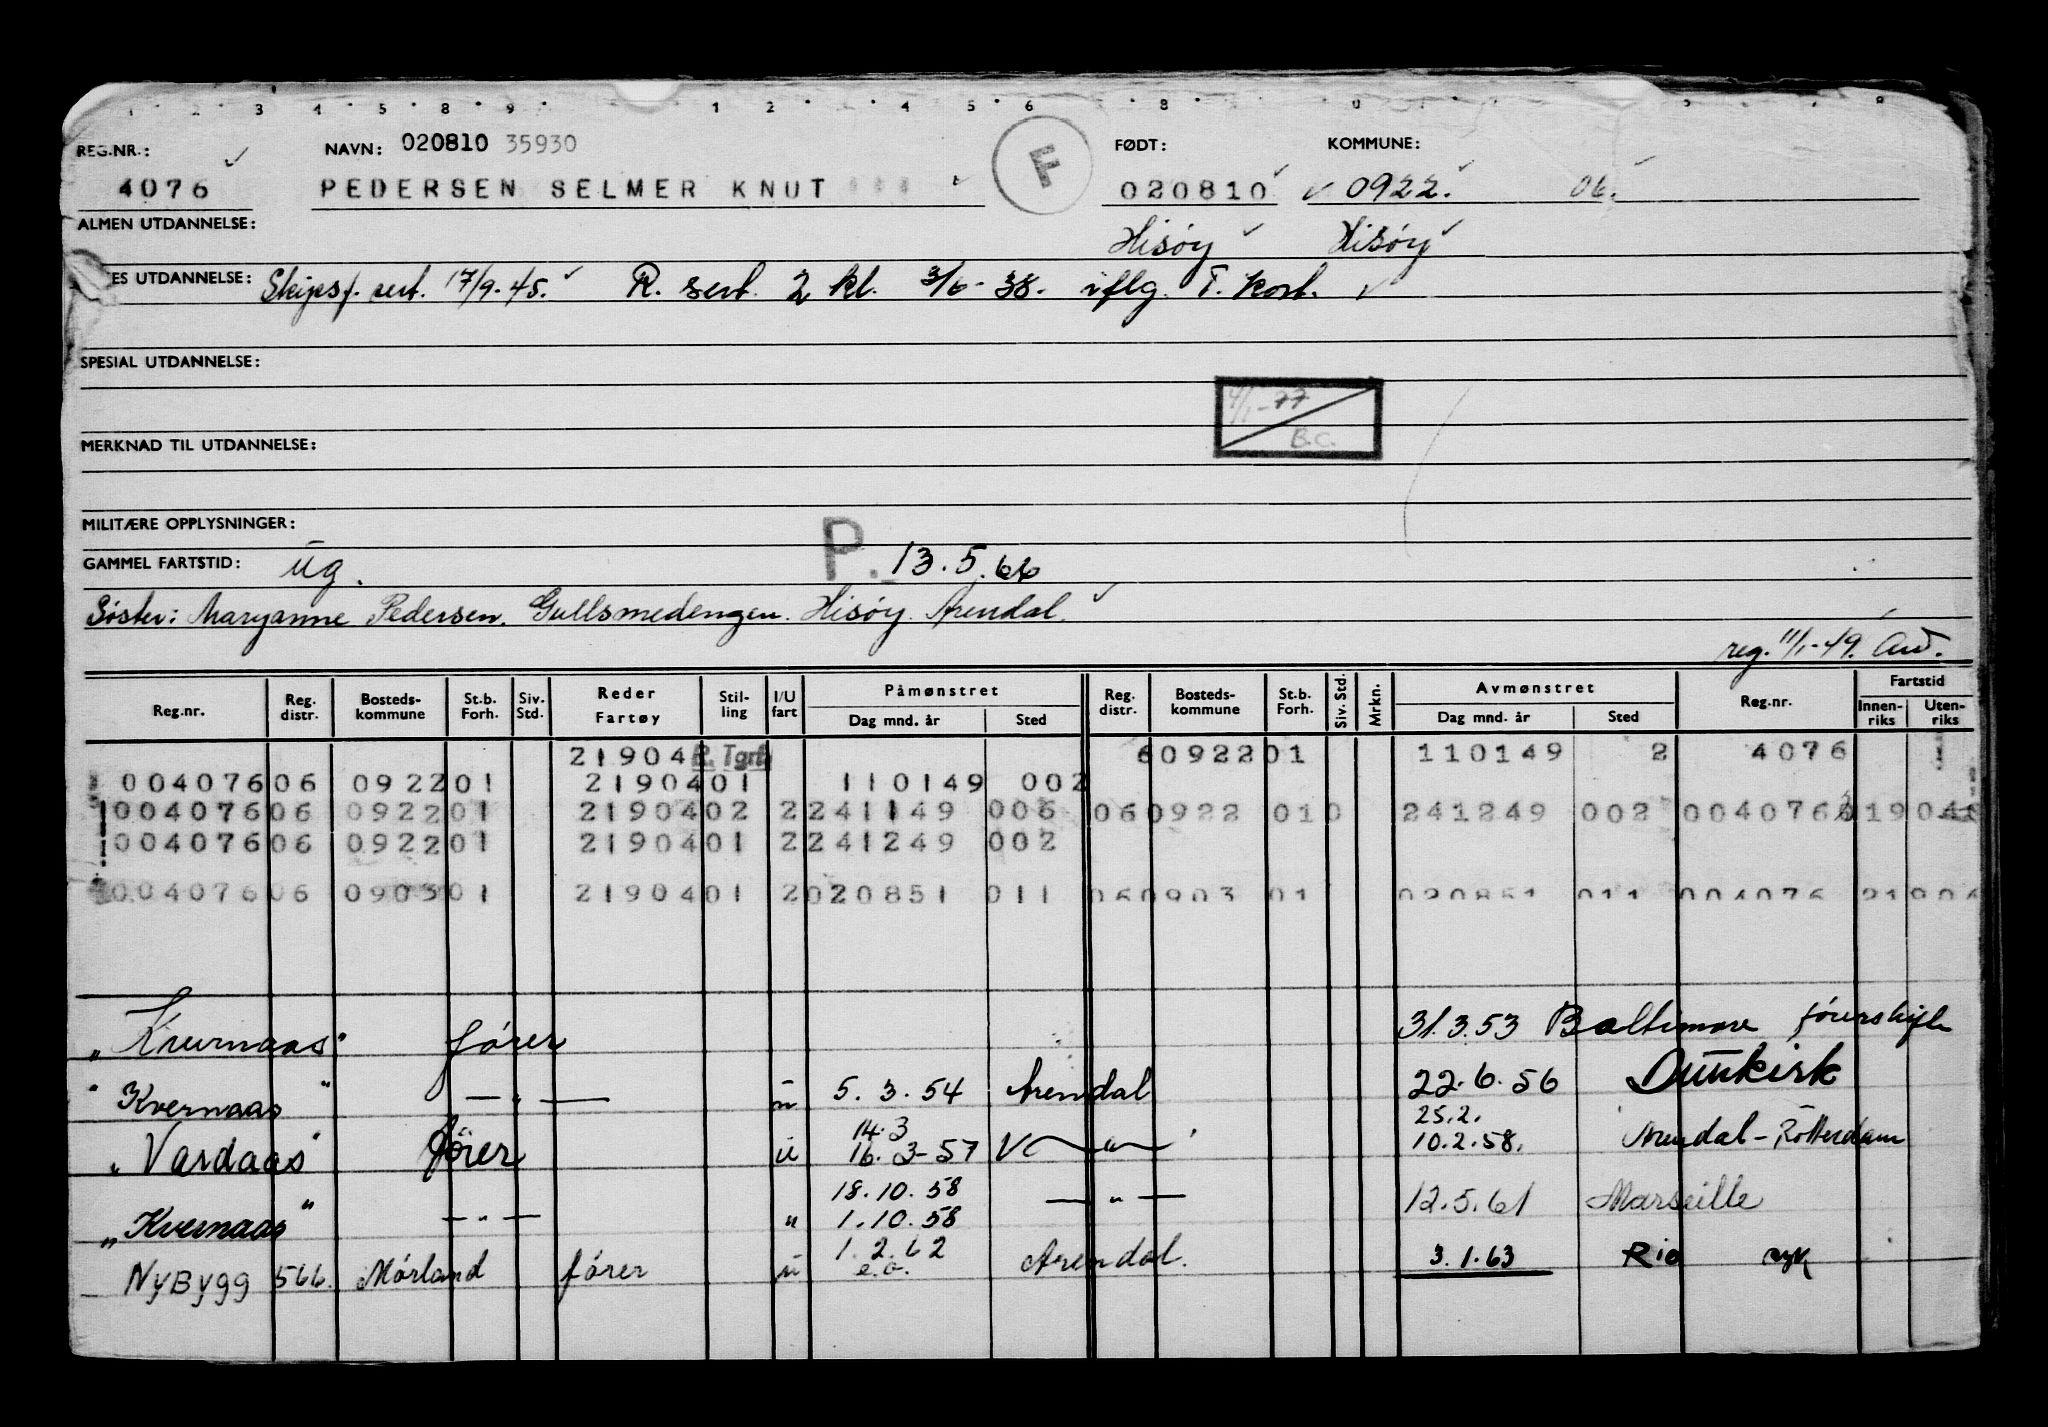 REG.NR.: NAVN: 020810 35930 F FØDT: KOMMUNE:
4076 PEDERSEN SELMER KNUT 020810 0922. 06.
ALMEN UTDANNELSE: Hisøy Hisøy
ES UTDANNELSE: Skipsf. sert. 17/9-45. R. sert. 2 kl. 3/6-38. iflg. T. kort.
SPESIAL UTDANNELSE:
4/1-77
B.C.
MERKNAD TIL UTDANNELSE:
MILITÆRE OPPLYSNINGER:
GAMMEL FARTSTID: ug. P. 13.5.66
Søster: Maryanne Pedersen. Gullsmedengen. Hisøy. Arendal.
reg. 11/1-49.
Reg.nr. Reg. distr. Bosteds-kommune St.b. Forh. Siv. Std. Reder Fartøy Stil-ling I/U fart Påmønstret Dag mnd. år Sted Reg. distr. Bosteds-kommune St.b. Forh. Siv. Std. Mrkn. Avmønstret Dag mnd. år Sted Reg.nr. Fartstid Innen-riks Uten-riks
21904 R. Tgrf. 6 0922 01 110149 2 4076 1
004076 06 0922 01 21904 01 110149 002
004076 06 0922 01 21904 02 2 241149 006 06 0922 01 0 241249 002 004076
004076 06 0922 01 21904 01 2 241249 002
004076 06 0903 01 21904 01 2 020851 011 06 0903 01 020851 011 004076 21904
"Kvernaas" fører 31.3.53 Baltimore
"Kvernaas" — " — u 5.3.54 Arendal 22.6.56 Dunkirk
14.3 25.2.
"Vardaas" fører u 16.3-57 — " — 10.2.58. Arendal - Rotterdam
18.10.58
"Kvernaas" — " — " 1.10.58 — " — 12.5.61 Marseille
1.2.62
NyBygg 566. Mørland fører u e.o. Arendal. 3.1.63 Rio syk